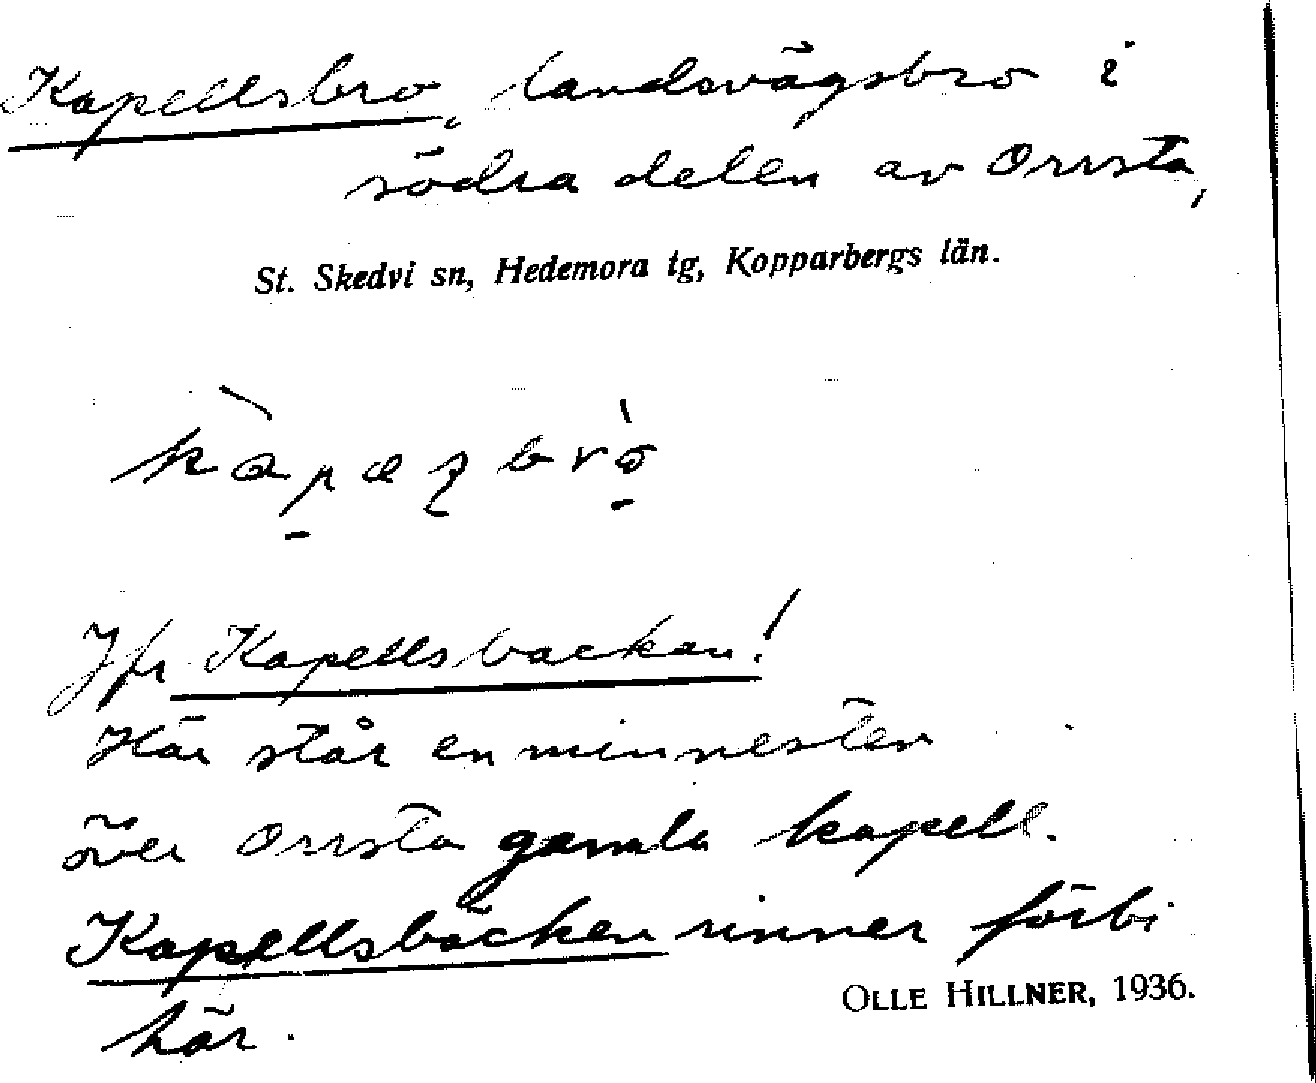 Kapellsbro, landsvägsbro i
södra delen av Orrsta,
St. Skedvi sn, Hedemora tg, Kopparbergs län.
Jfr Kapellsbacken!
Här står en minnesten
över Orrsta gamla kapell.
Kapellsbäcken rinner förbi
OLLE HILLNER, 1936.
här.